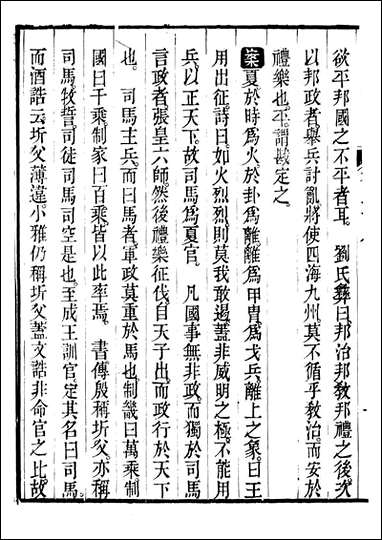 欲平邦國之不平者耳。　劉氏彝曰邦治邦敎邦禮之後次
以邦政者舉兵討亂將使四海九州莫不循乎敎治而安於
禮樂也平謂戡定之。
案夏於時爲火於卦爲離離爲甲冑爲戈兵離上之象曰王
用出征詩曰如火烈烈則莫我敢遏蓋非威明之極不能用
兵以正天下故司馬爲夏官。　凡國事無非政而獨於司馬
言政者張皇六師然後禮樂征伐自天子出而政行於天下
也。　司馬主兵而曰馬者軍政莫重於馬也制畿曰萬乘制
國曰千乘制家曰百乘皆以此率焉。　書傳殷稱圻父亦稱
司馬牧誓司徒司馬司空是也至成王訓官定其名曰司馬
而酒誥云圻父薄違小雅仍稱圻父蓋文誥非命官之比故